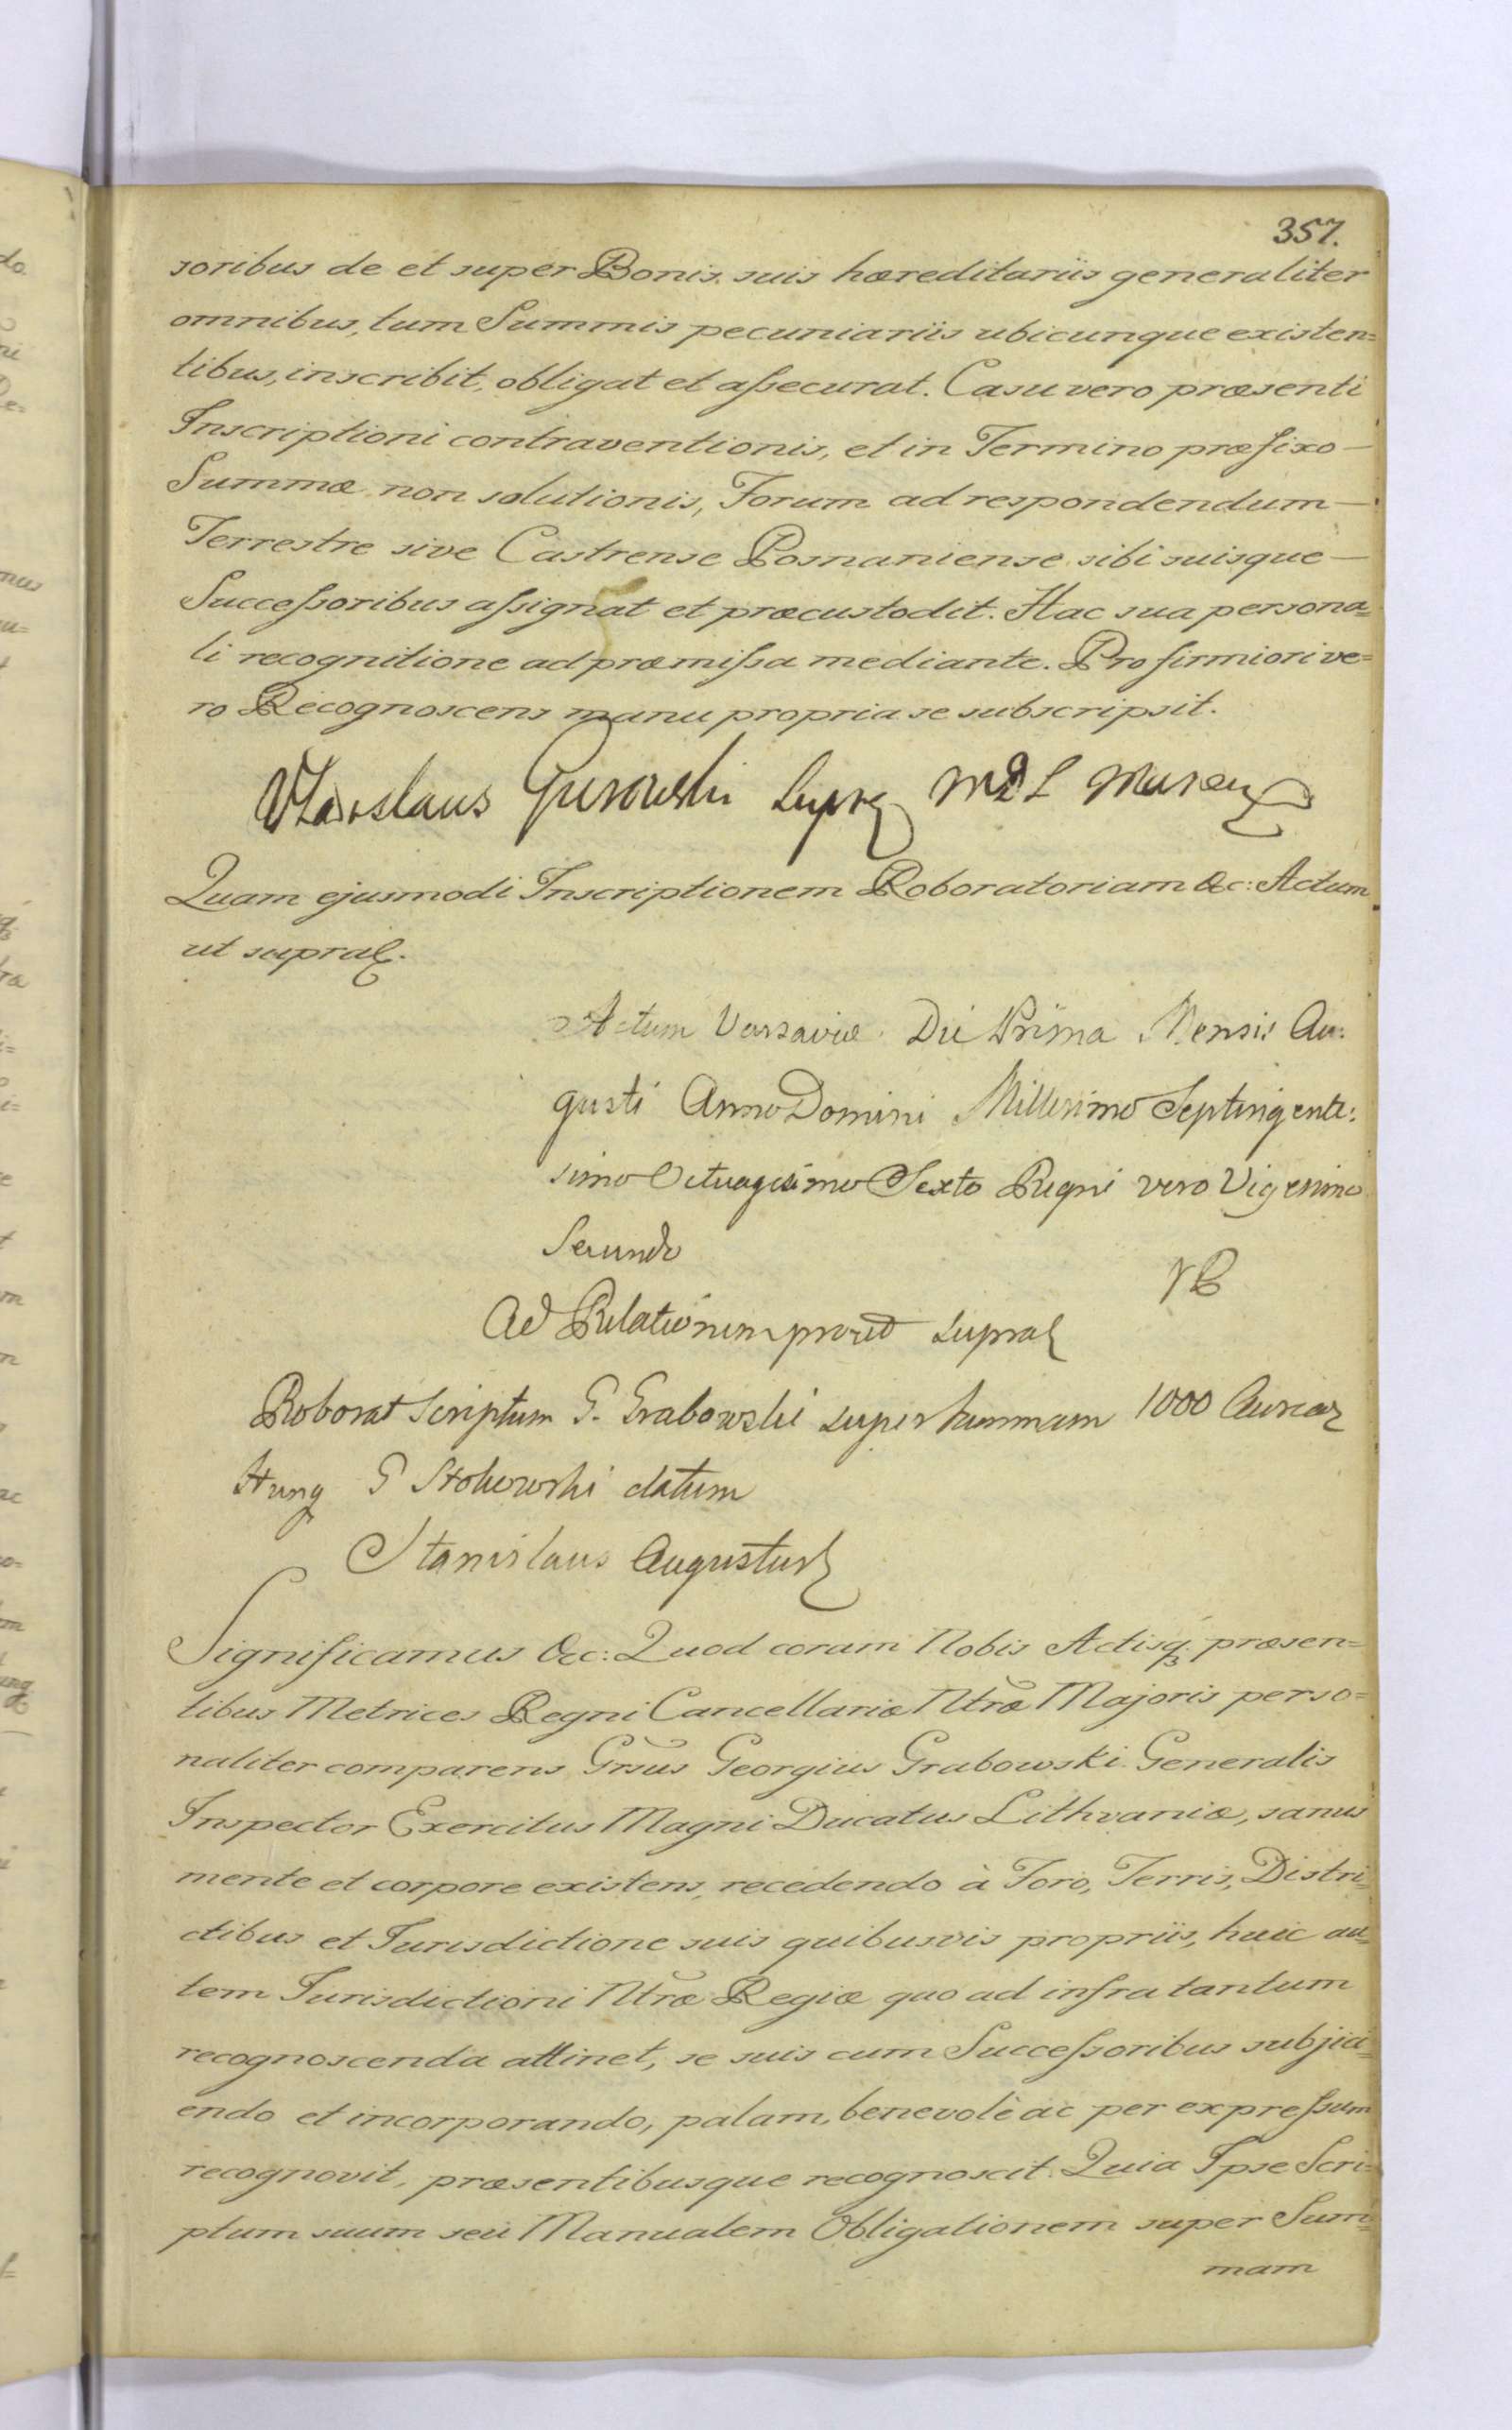 357.
soribus de et super Bonis suis hæreditariis generaliter
omnibus, tum Summis pecuniariis ubicunque existen=
tibus, inscribit, obligat et aſsecurat. Casu vero præsenti
Inscriptioni contraventionis, et in Termino præfixo —
Summæ non solutionis, Forum ad respondendum —
Terrestre sive Castrense Posnaniense sibi suisque —
Succeſsoribus aſsignat et præcustodit. Hac sua persona=
li recognitione ad præmiſsa mediante. Pro firmiori ve=
ro Recognoscens manu propria se subscripsit.
Gurowski Supr M D L
Quam ejusmodi Inscriptionem Roboratoriam &c: Actum
ut supra.
Actum Varsaviæ Die Prima Mensis Au:
gusti Anno Domini Millesimo Septingente:
simo Octuagesimo Sexto Regni vero Vigesimo
Secundo
Ad Relationem prout supra
Roborat Scriptum G. Grabowski super summam 1000 Aureor
Hung G Stokowski datum
Stanislaus Augustus
Significamus &c: Quod coram Nobis Actisq; præsen=
tibus Metrices Regni Cancellariæ Ntræ Majoris perso=
naliter comparens Grsus Georgius Grabowski Generalis
Inspector Exercitus Magni Ducatus Lithvaniæ, sanus
mente et corpore existens, recedendo à Foro, Terris, Distri=
ctibus et Jurisdictione suis quibusvis propriis, huic au=
tem Jurisdictioni Ntræ Regiæ quo ad infra tantum
recognoscenda attinet, se suis cum Succeſsoribus subjici=
endo et incorporando, palam, benevolè ac per expreſsum
recognovit, præsentibusque recognoscit. Quia Ipse Scri=
ptum suum seu Manualem Obligationem super Sum=
mam